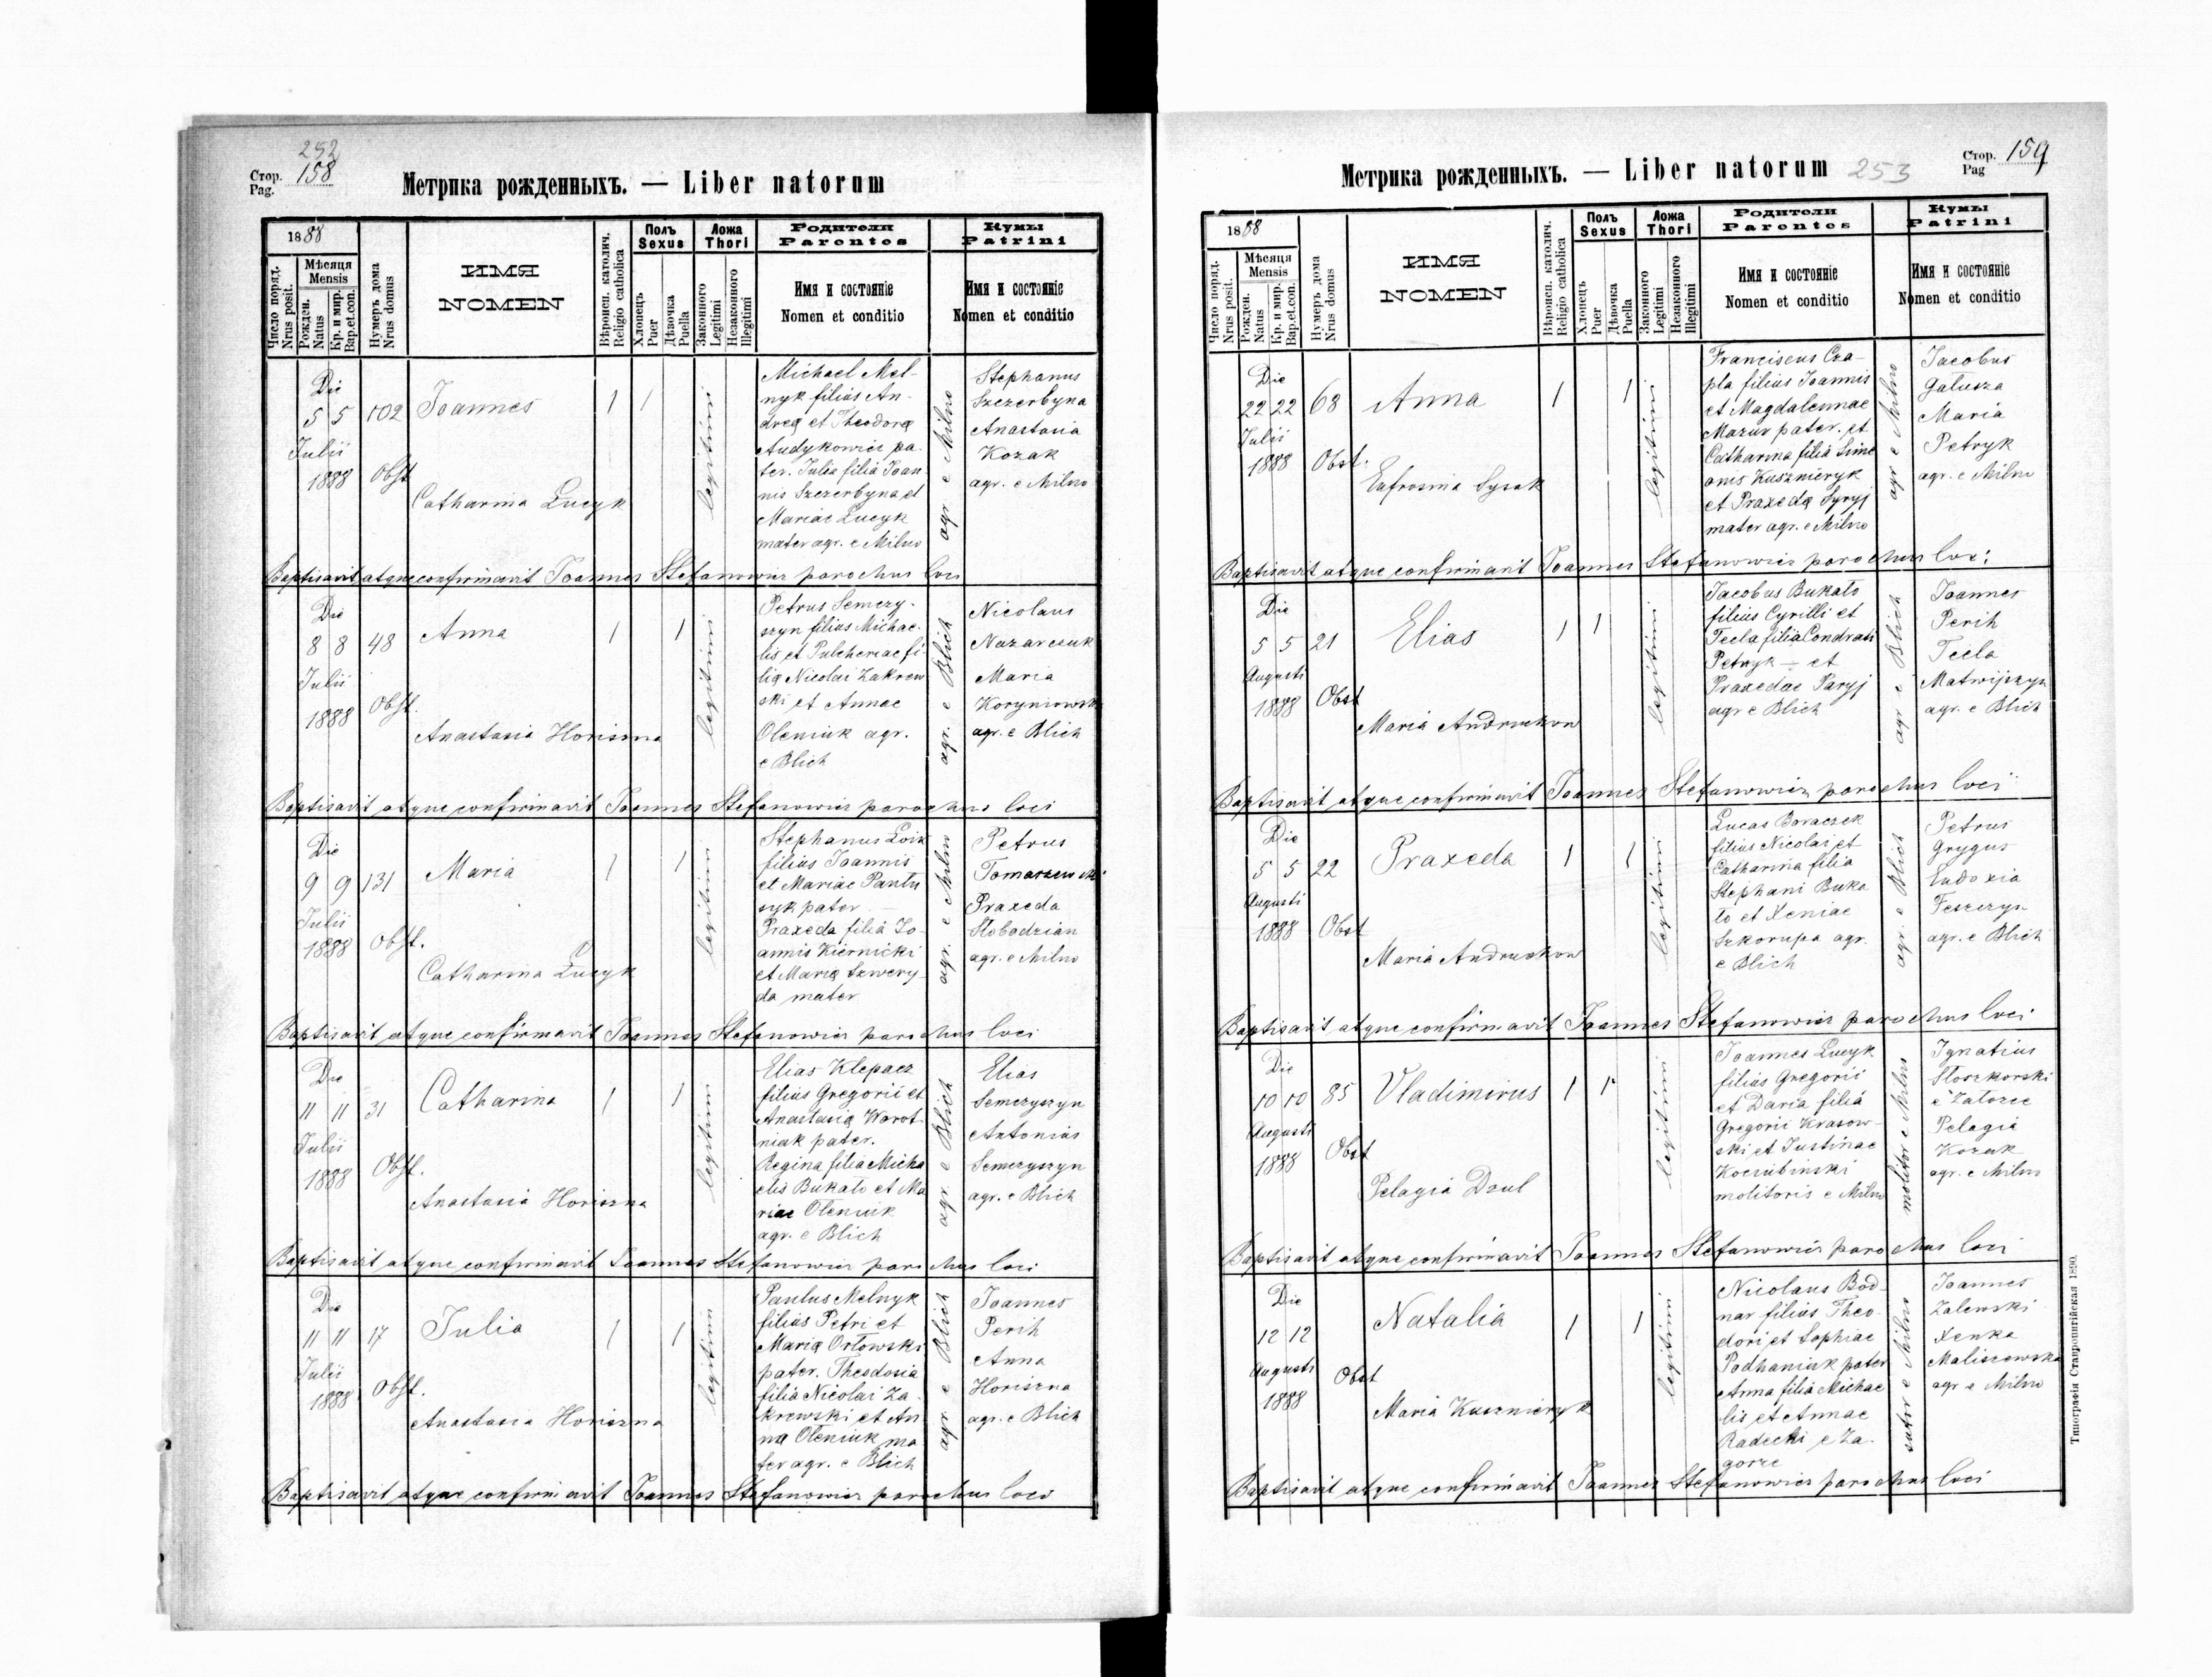 252
Стор. 158
Pag.
Метрика рожденныхъ. — Liber natorum
1888
Число поряд.
Nrus posit.
Мѣсяця
Mensis
Рожден.
Natus
Кр. и мир.
Bap.et.con.
Нумеръ дома
Nrus domus
ИМЯ
NOMEN
Вѣроисп. католич.
Religio catholica
Полъ
Sexus
Хлопецъ
Puer
Дѣвочка
Puella
Ложа
Thori
Законного
Legitimi
Незаконного
Illegitimi
Родители
Parentes
Имя и состояніе
Nomen et conditio
Кумы
Patrini
Имя и состояніе
Nomen et conditio
Die
5 5 102 Joannes 1 1
Julii
1888 Obst
Catharina Łucyk
legitimi
Michael Mel-
nyk filius An-
dreą et Theodorą
Audykowicz pa-
ter. Julia filia Joan-
nis Szczerbyna et
Mariae Łucyk
mater agr. e Milno
agr e Milno
Stephanus
Szczerbyna
Anastasia
Kozak
agr. e Milno
Baptisavit atque confirmavit Joannes Stefanowicz parochus loci
Die
8 8 48 Anna 1 1
Julii
1888 Obst.
Anastasia Horiszna
legitimi
Petrus Semczy-
szyn filius Michae-
lis et Pulcheriae fi-
lią Nicolai Zakrew
ski et Annae
Oleniuk agr.
e Blich
agr. e Blich
Nicolaus
Nazarczuk
Maria
Koryniowska
agr. e Blich
Baptisavit atque confirmavit Joannes Stefanowicz parochus loci
Die
9 9 131 Maria 1 1
Julii
1888 Obst.
Catharina Łucyk
legitimi
Stephanus Łoik
filius Joannis
et Mariae Pantu
syk pater —
Praxeda filia Jo-
annis Kiernicki
et Marią Szwery-
da mater
agr. e Milno
Petrus
Tomaszewski
Praxeda
Słobodzian
agr. e Milno
Baptisavit atque confirmavit Joannes Stefanowicz parochus loci
Die
11 11 31 Catharina 1 1
Julii
1888 Obst.
Anastasia Horiszna
legitimi
Elias Klepacz
filius Gregorii et
Anastasią Worot
niak pater.
Regina filia Micha
elis Bukato et Ma
riae Oleniuk
agr. e Blich
agr. e Blich
Elias
Semczyszyn
Antonius
Semczyszyn
agr. e Blich
Baptisavit atque confirmavit Joannes Stefanowicz parochus loci
Die
11 11 17 Julia 1 1
Julii
1888 Obst.
Anastasia Horiszna
legitimi
Paulus Melnyk
filius Petri et
Marią Orłowski
pater. Theodosia
filia Nicolai Za-
krewski et An-
ną Oleniuk ma
ter agr. e Blich
agr. e Blich
Joannes
Perih
Anna
Horiszna
agr. e Blich
Baptisavit atque confirmavit Joannes Stefanowicz parochus loci
Метрика рожденныхъ. — Liber natorum 253
Стор. 159
Pag
1888
Число поряд.
Nrus posit.
Мѣсяця
Mensis
Рожден.
Natus
Кр. и мир.
Bap.et.con.
Нумеръ дома
Nrus domus
ИМЯ
NOMEN
Вѣроисп. католич.
Religio catholica
Полъ
Sexus
Хлопецъ
Puer
Дѣвочка
Puella
Ложа
Thori
Законного
Legitimi
Незаконного
Illegitimi
Родители
Parentes
Имя и состояніе
Nomen et conditio
Кумы
Patrini
Имя и состояніе
Nomen et conditio
Die
22 22 68 Anna 1 1
Julii
1888 Obst.
Eufrosina Sysak
legitimi
Franciscus Cza-
pla filius Joannis
et Magdalennae
Mazur pater. et
Catharina filia Sime
onis Kusznieryk
et Praxedą Syryj
mater agr. e Milno
agr e Milno
Jacobus
Gałusza
Maria
Petryk
agr. e Milno
Baptisavit atque confirmavit Joannes Stefanowicz parochus loci
Die
5 5 21 Elias 1 1
Augusti
1888 Obst
Maria Andruchow
legitimi
Jacobus Bukato
filius Cyrilli et
Tecla filia Condrati
Petryk — et
Praxedae Paryj
agr e Blich
agr e Blich
Joannes
Perih
Tecla
Matwijszyn
agr. e Blich
Baptisavit atque confirmavit Joannes Stefanowicz parochus loci
Die
5 5 22 Praxeda 1 1
Augusti
1888 Obst
Maria Andruchow
legitimi
Lucas Boraczek
filius Nicolai et
Catharina filia
Stephani Buka
to et Xeniae
Szkorupa agr.
e Blich
agr. e Blich
Petrus
Grygus
Eudoxia
Feszczyn
agr. e Blich
Baptisavit atque confirmavit Joannes Stefanowicz parochus loci
Die
10 10 85 Vladimirus 1 1
Augusti
1888 Obst
Pelagia Dzul
legitimi
Joannes Łucyk
filius Gregorii
et Daria filia
Gregorii Krasow-
ski et Justinae
Kociubinski
molitoris e Milno
molitor e Milno
Ignatius
Słoszkorski
e Załozce
Pelagia
Kozak
agr. e Milno
Baptisavit atque confirmavit Joannes Stefanowicz parochus loci
Die
12 12 Natalia 1 1
Augusti
1888 Obst
Maria Kusznieryk
legitimi
Nicolaus Bod-
nar filius Theo-
dori et Sophiae
Podhaniuk pater
Anna filia Michae
lis et Annae
Radecki e Za-
gorze
sutor e Milno
Joannes
Zalewski
Xenka
Maliszewska
agr e Milno
Baptisavit atque confirmavit Joannes Stefanowicz parochus loci
Типографія Ставропигійская 1890.